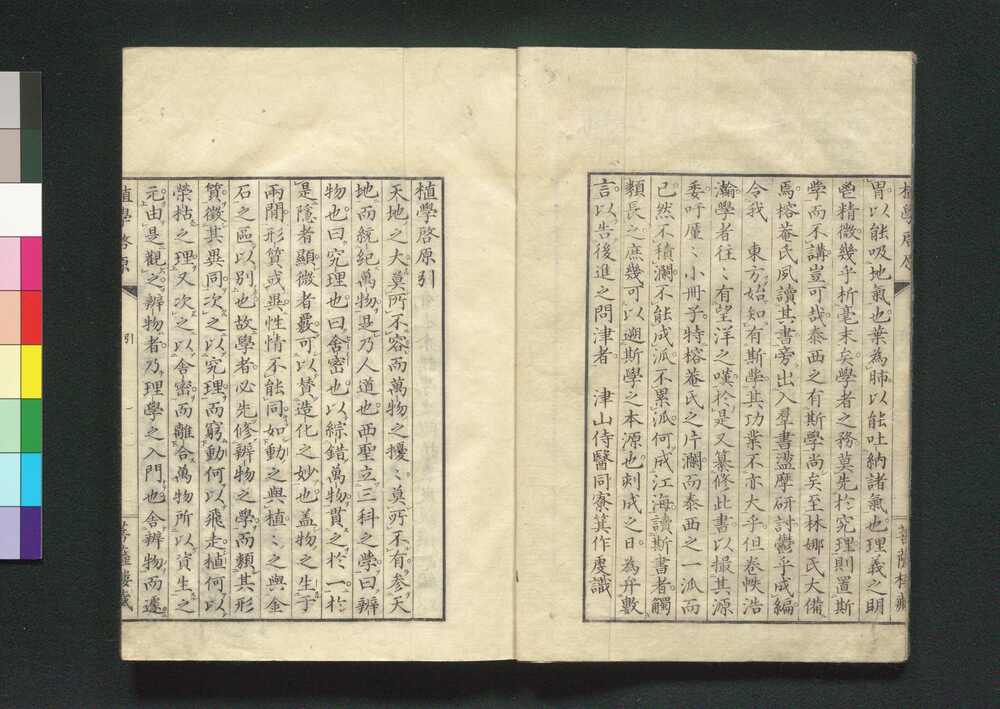 胃以能吸地氣也葉為肺以能吐納諸氣也理義之明
鬯精微幾乎析毫末矣學者之務莫先於究理則置斯
學而不講豈可哉泰西之有斯學尚矣至林娜氏大備
焉榕菴氏夙讀其書旁出入羣書盪摩研討鬱乎成編
令我　東方始知有斯學其功業不亦大乎但卷帙浩
瀚學者往〻有望洋之嘆於是又纂修此書以撮其源
委吁厪〻小冊子特榕菴氏之片瀾而泰西之一派而
已然不積瀾不能成派不累派何成江海讀斯書者觸
類長之庶幾可以遡斯學之本源也刻成之日為弁數
言以告後進之問津者　津山侍醫同寮箕作虔識
植學啓原引
天地之大莫所不容而萬物之擾〻莫所不有參天
地而統紀萬物是乃人道也西聖立三科之學曰辨
物也曰究理也曰舍密也以綜錯萬物貫之於一於
是隱者顯微者覈可以賛造化之妙也盖物之生于
兩間形質或異性情不能同如動之與植〻之與金
石之區以別也故學者必先修辨物之學而類其形
質徵其異同次之以究理而窮動何以飛走植何以
榮枯之理又次之以舍密而離合萬物所以資生之
元由是觀之辨物者乃理學之入門也舍辨物而遽
植學啓原　引　一　菩薩樓藏